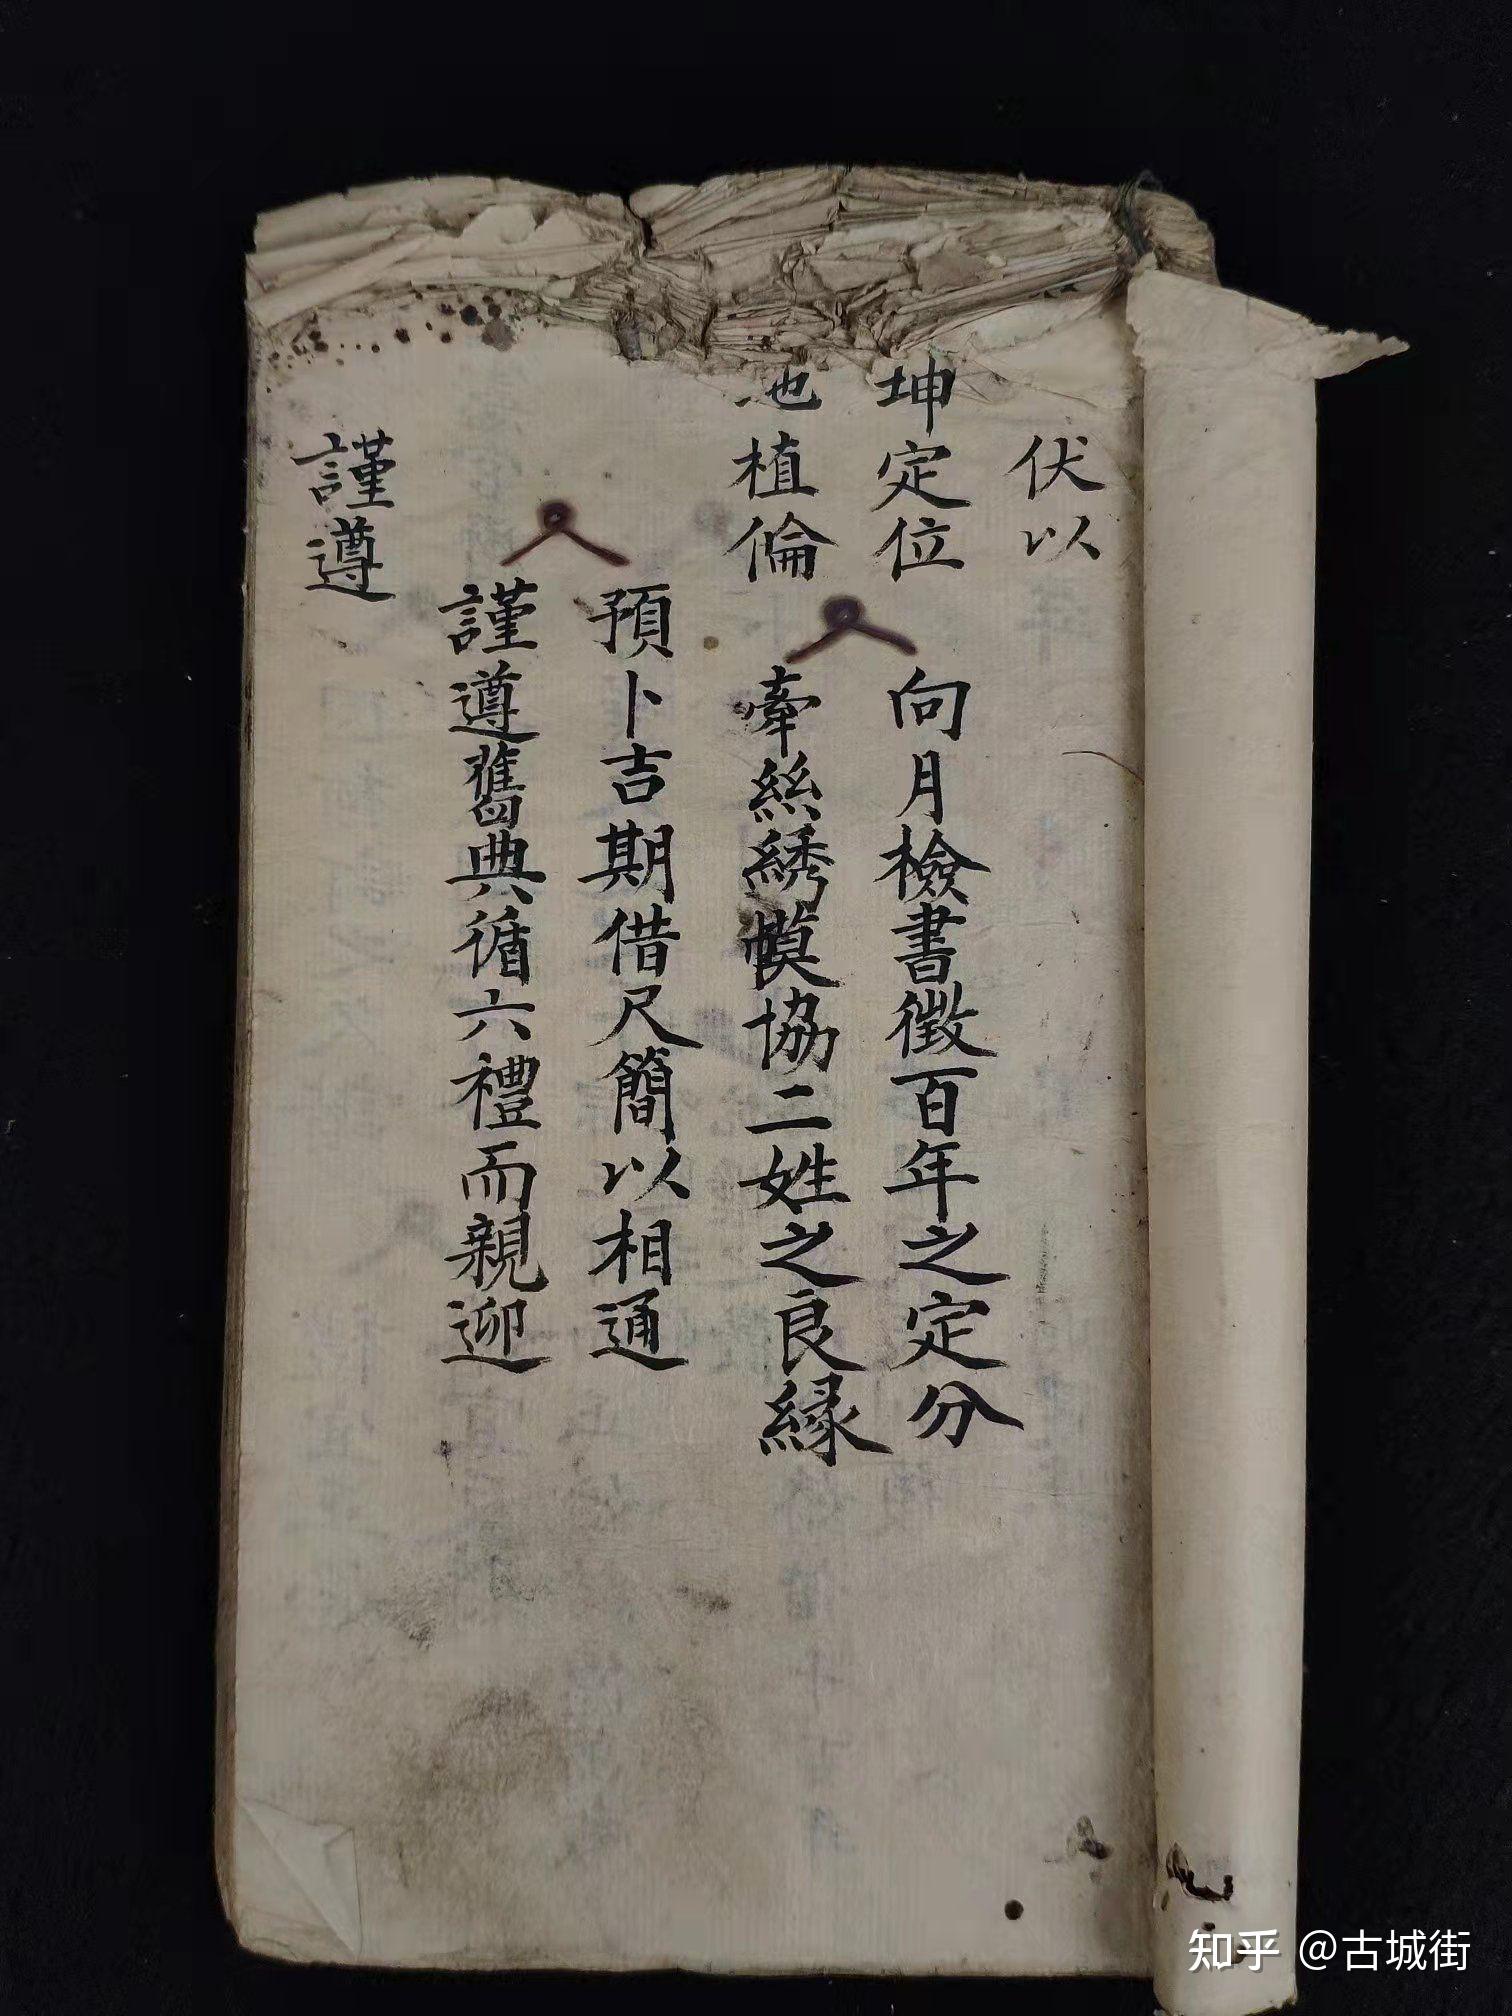 伏以
坤定位
地植倫
向月檢書徵百年之定分
牽絲綉幙協二姓之良緣
預卜吉期借尺簡以相通
謹遵舊典循六禮而親迎
謹遵
知乎 @古城街